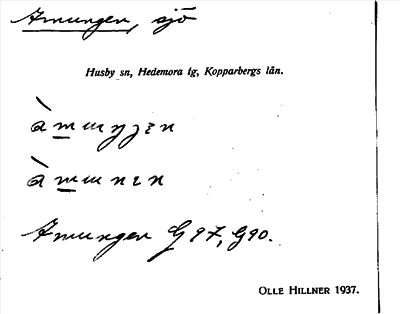 Amungen, sjö
Husby sn, Hedemora tg, Kopparbergs län.
Amungen G97, G90.
OLLE HILLNER 1937.